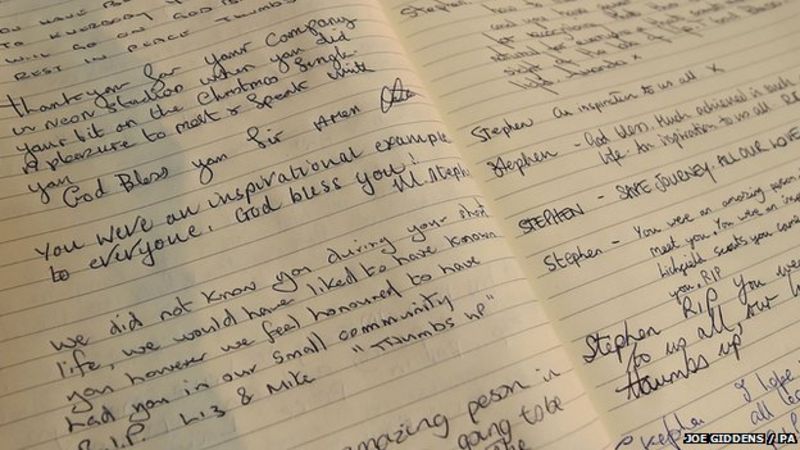 YOU HAVE B
TO EVERYBODY
WILL GO ON GOD B
REST IN PEACE THUMBS
Thank you for your Company
in Neon Studios when you did
your bit on the Christmas Single.
A pleasure to meet & speak with
you
God Bless you Sir Amen
You were an inspirational example
to everyone. God bless you!
M. Steph
We did not know you during your short
life, we would have liked to have known
you however we feel honoured to have
had you in our small community
R.I.P. Liz & Mike "Thumbs up"
amazing person in
going to be
the
Stephen
and you have
for
natural for everyone
sight of the
light. x
Stephen An inspiration to us all x
Stephen - God bless. Much achieved in such
life. An inspiration to us all. R.I
STEPHEN - SAFE JOURNEY. ALL OUR LOVE
Stephen - You were an amazing person
meet you. You were an ins
Lichfield scouts you
you. RIP
Stephen RIP you we
to us all, our
thumbs up
Stephen I hope
all
JOE GIDDENS / PA